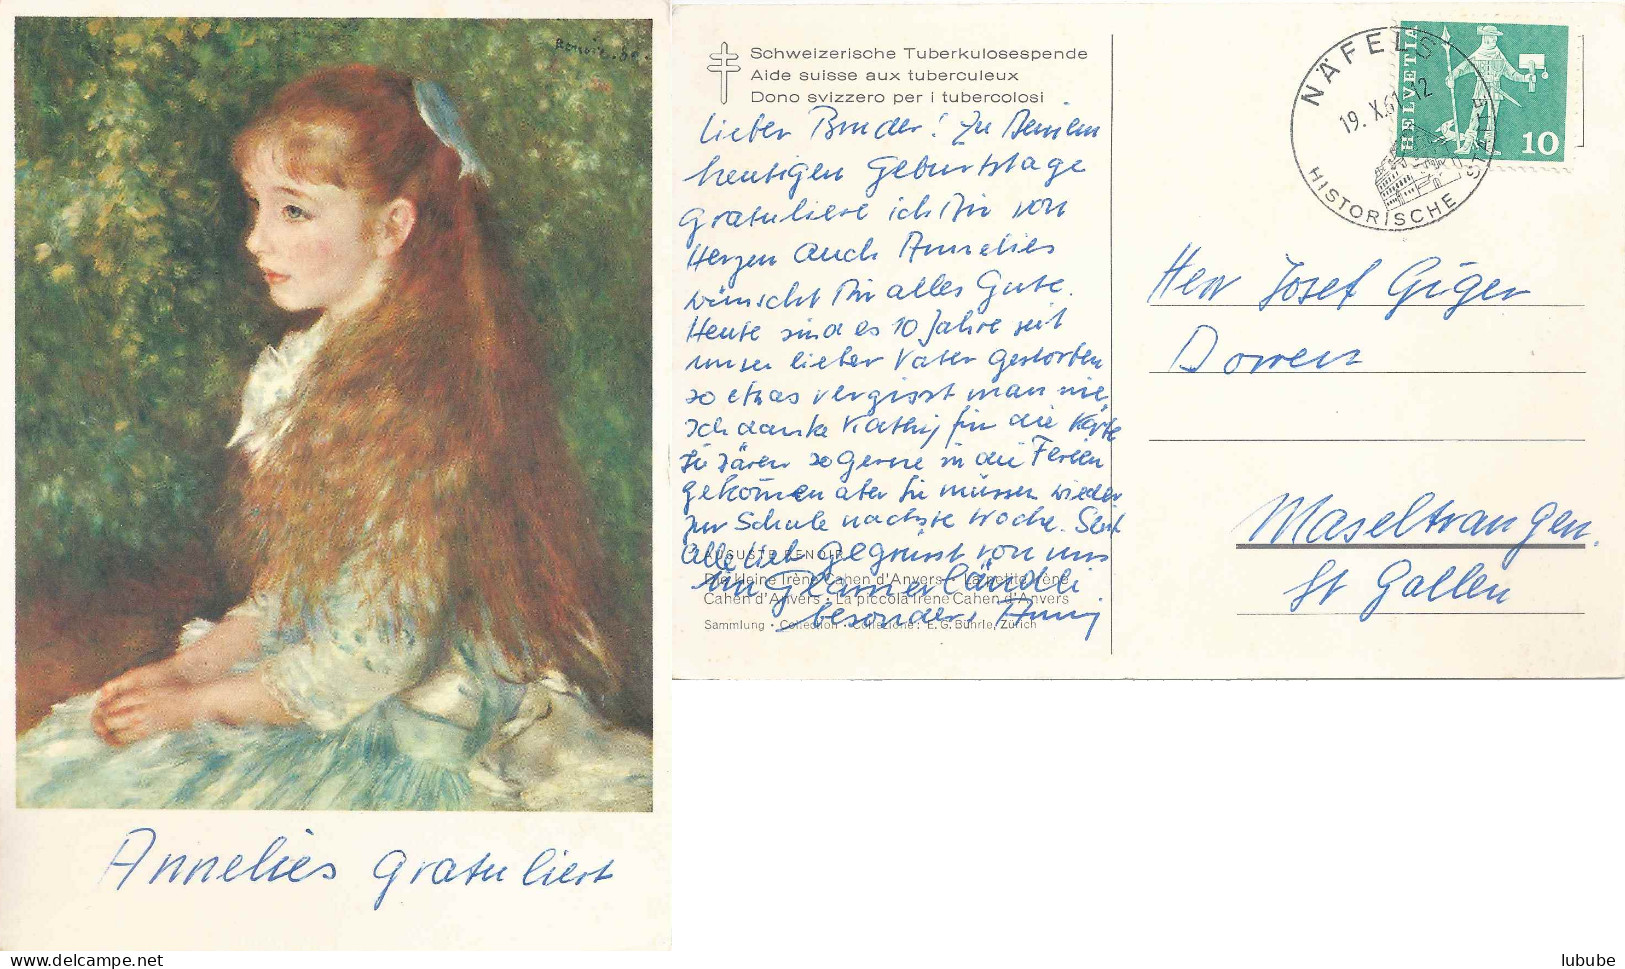 Renoir. 80.
Annelies gratuliert
Schweizerische Tuberkulosespende
Aide suisse aux tuberculeux
Dono svizzero per i tubercolosi
Lieber Bruder! Zu Deinem
heutigen Geburtstage
gratuliere ich Dir von
Herzen auch Annelies
wünscht Dir alles Gute.
Heute sind es 10 Jahre seit
unser lieber Vater gestorben
so etwas vergisst man nie
Ich danke Kathij für die Karte
Sie wären so gerne in die Ferien
gekommen aber Sie müssen wieder
zur Schule nächste Woche. Seit
alle lieb gegrüsst von uns
im Glarner ländli
besonders Annij
AUGUSTE RENOIR
Die kleine Irène Cahen d'Anvers · La petite Irène
Cahen d'Anvers · La piccola Irene Cahen d'Anvers
Sammlung · Collection · Collezione: E. G. Bührle, Zürich
NÄFELS
19. X. 61. 12
HISTORISCHE STÄTTE
HELVETIA
10
Herr Josef Giger
Dorren
Maseltrangen.
St Gallen
lubube